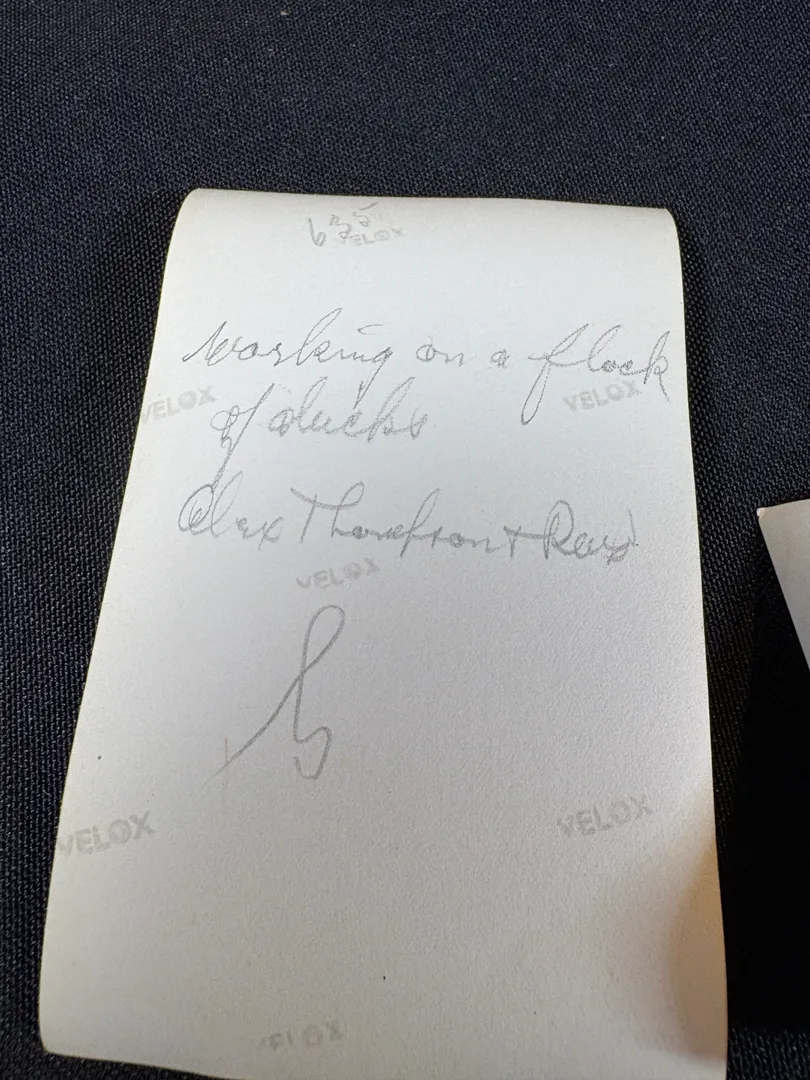 635
VELOX
Working on a flock
VELOX VELOX
of ducks
Alex Thompson + Rex
VELOX
VELOX VELOX
VELOX